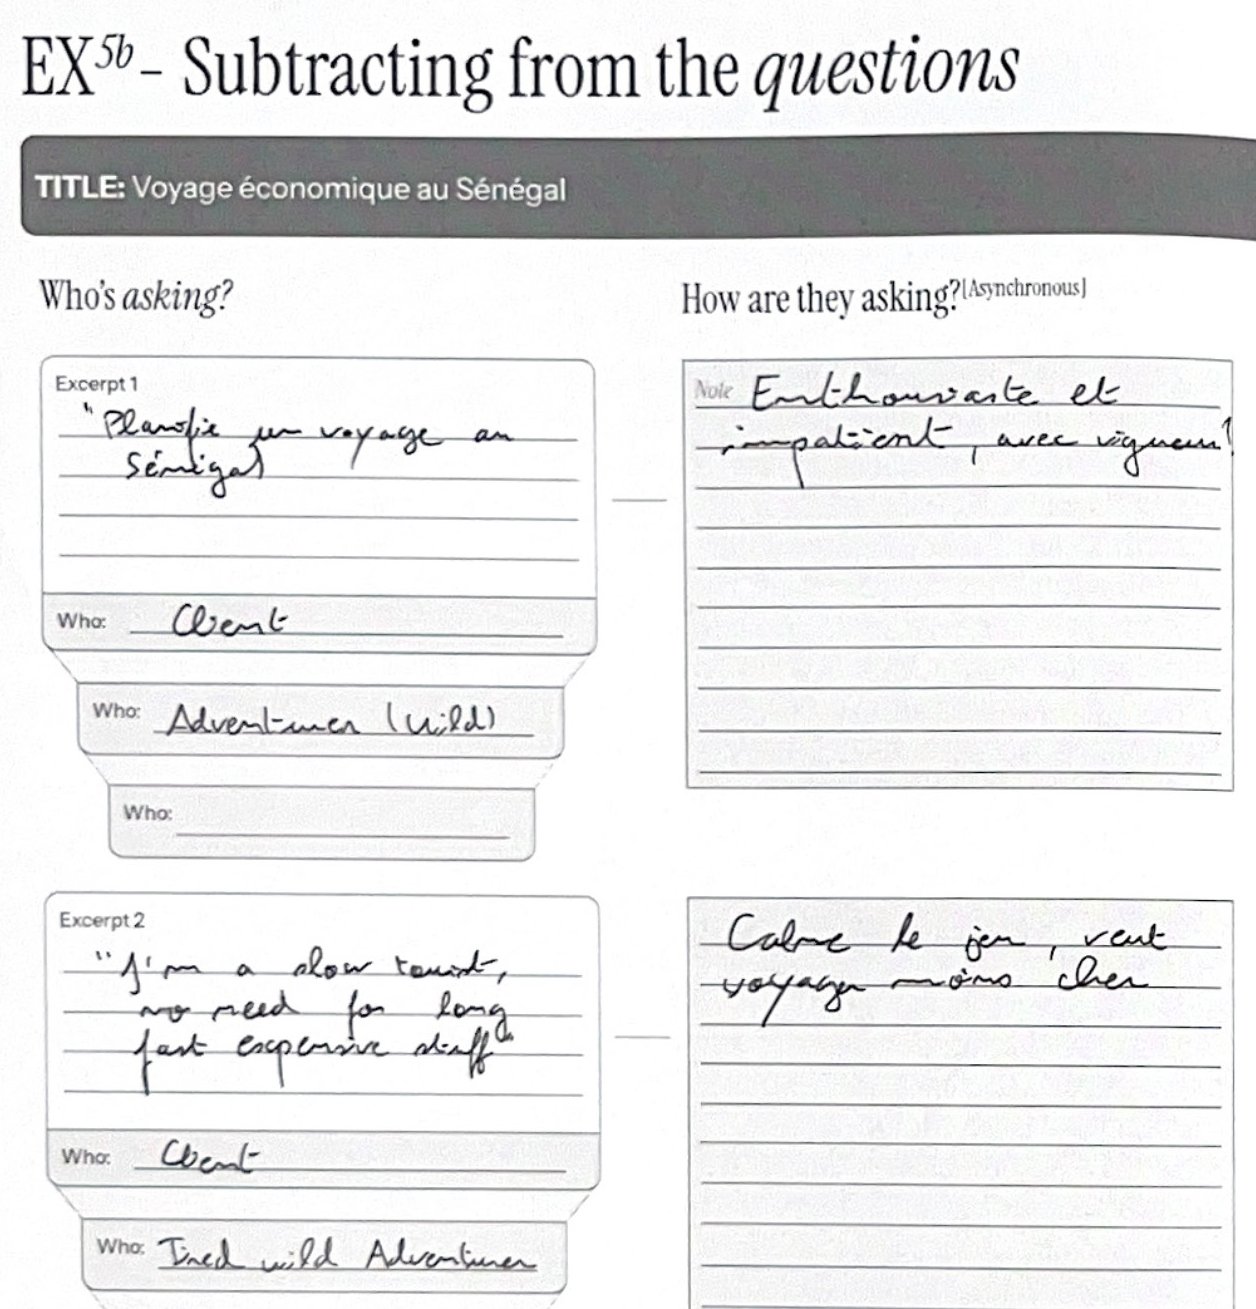 EX5b - Subtracting from the questions
TITLE: Voyage économique au Sénégal
Who's asking?
How are they asking?[Asynchronous]
Excerpt 1
"Planifie un voyage au
Sénégal
Who: Client
Who: Adventurer (wild)
Who:
Note Enthousiaste et
impatient, avec vigueur!
Excerpt 2
"I'm a slow tourist,
no need for long
fast expensive stuff"
Who: Client
Who: Tired wild Adventurer
Calme le jeu, veut
voyager moins cher